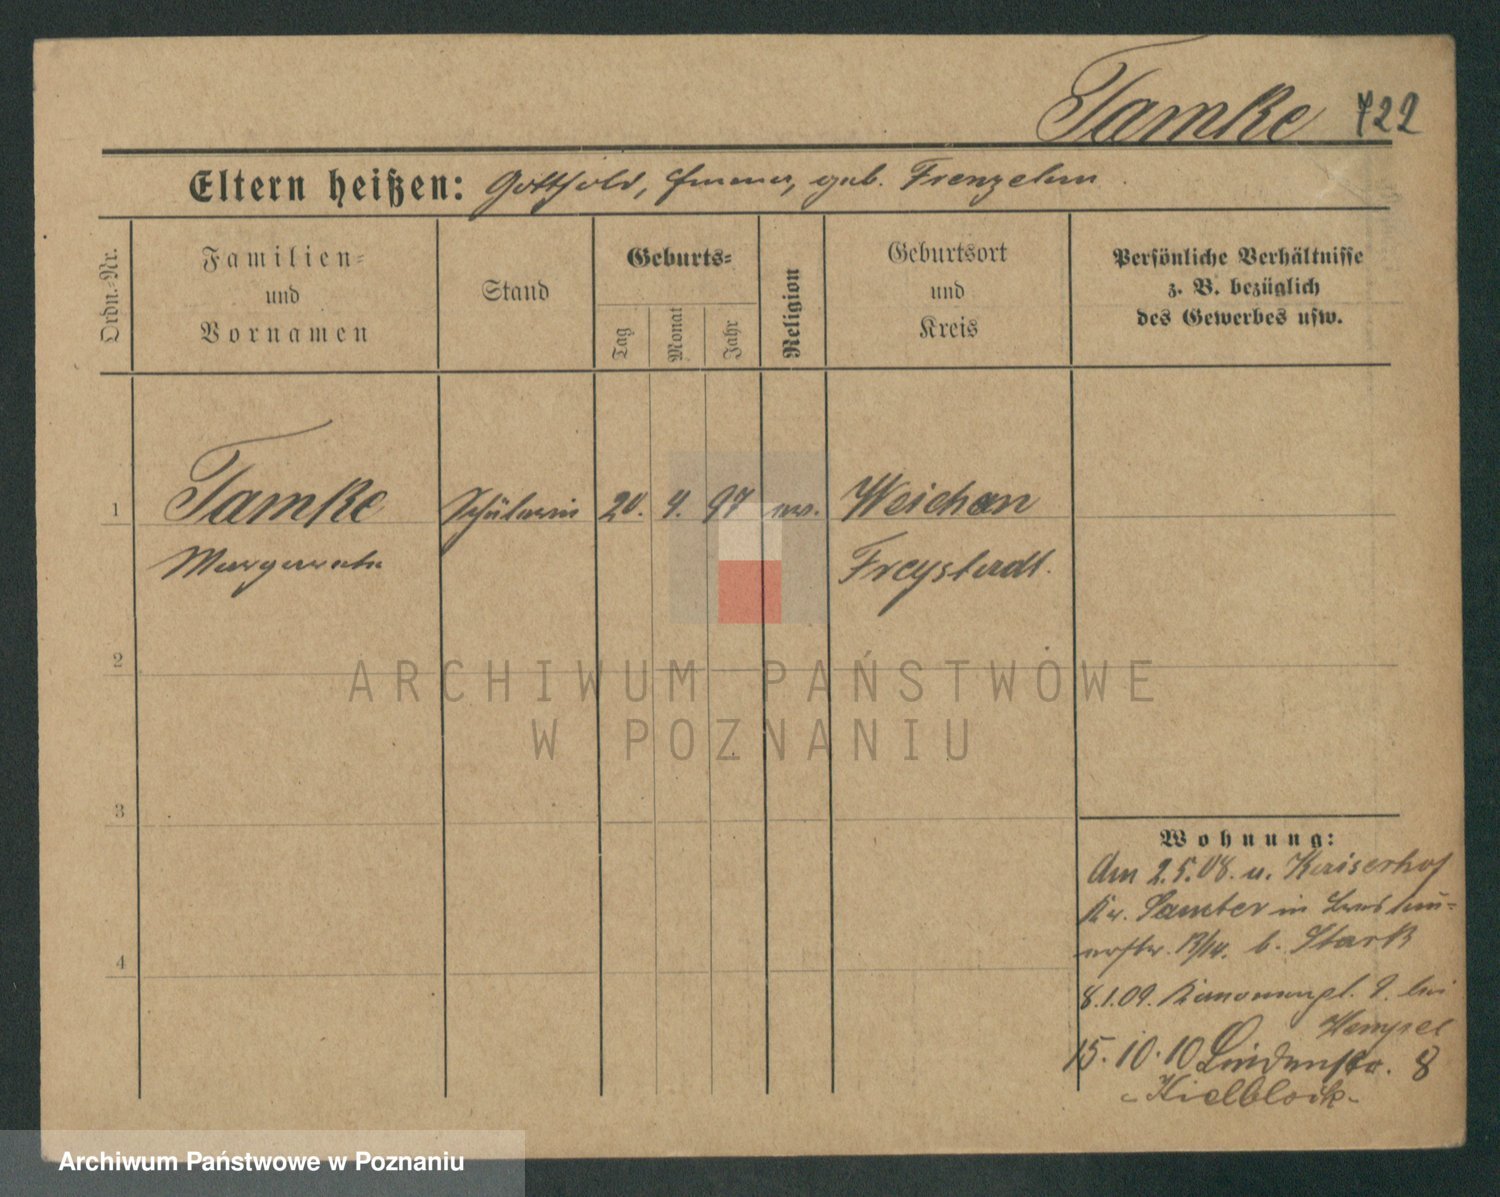 Tamke 722
Eltern heißen: Gotthold, Emma, geb. Frenzel
Ordn.-Nr.
Familien-
und
Vornamen
Stand
Geburts-
Tag
Monat
Jahr
Religion
Geburtsort
und
Kreis
Persönliche Verhältnisse
z. B. bezüglich
des Gewerbes usw.
1 Tamke Schülerin 20. 4. 97 ev. Weichau
Margarete Freystadt.
2
3
4
Wohnung:
Am 2.5.08. u. Kaiserhof
Kr. Samter in
13/14. b. Stark
8.1.09. Kanonenpl. 9. bei
Hempel
15.10.10 Lindenstr. 8
Kielblock
ARCHIWUM PAŃSTWOWE
W POZNANIU
Archiwum Państwowe w Poznaniu